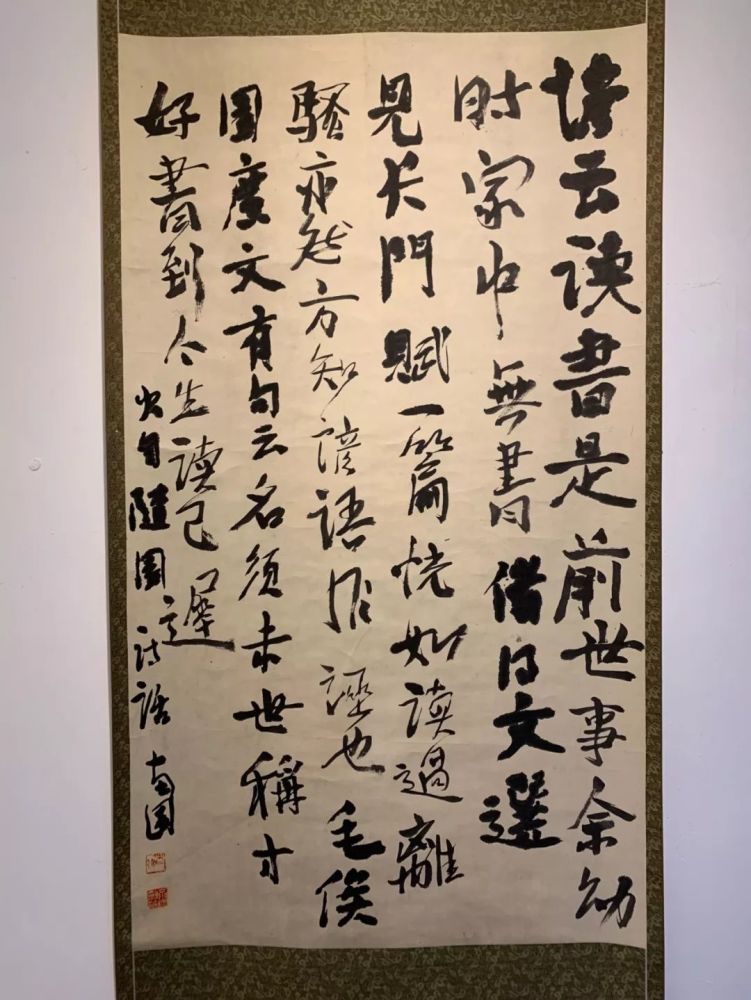 諺云读書是前世事余幼
时家中無書借得文選
見长門賦一篇恍如读過離
騷亦然方知諺語非誣也毛俟
園廣文有句云名須未世稱才
好書到今生读已遲
出自隨園诗話 南園